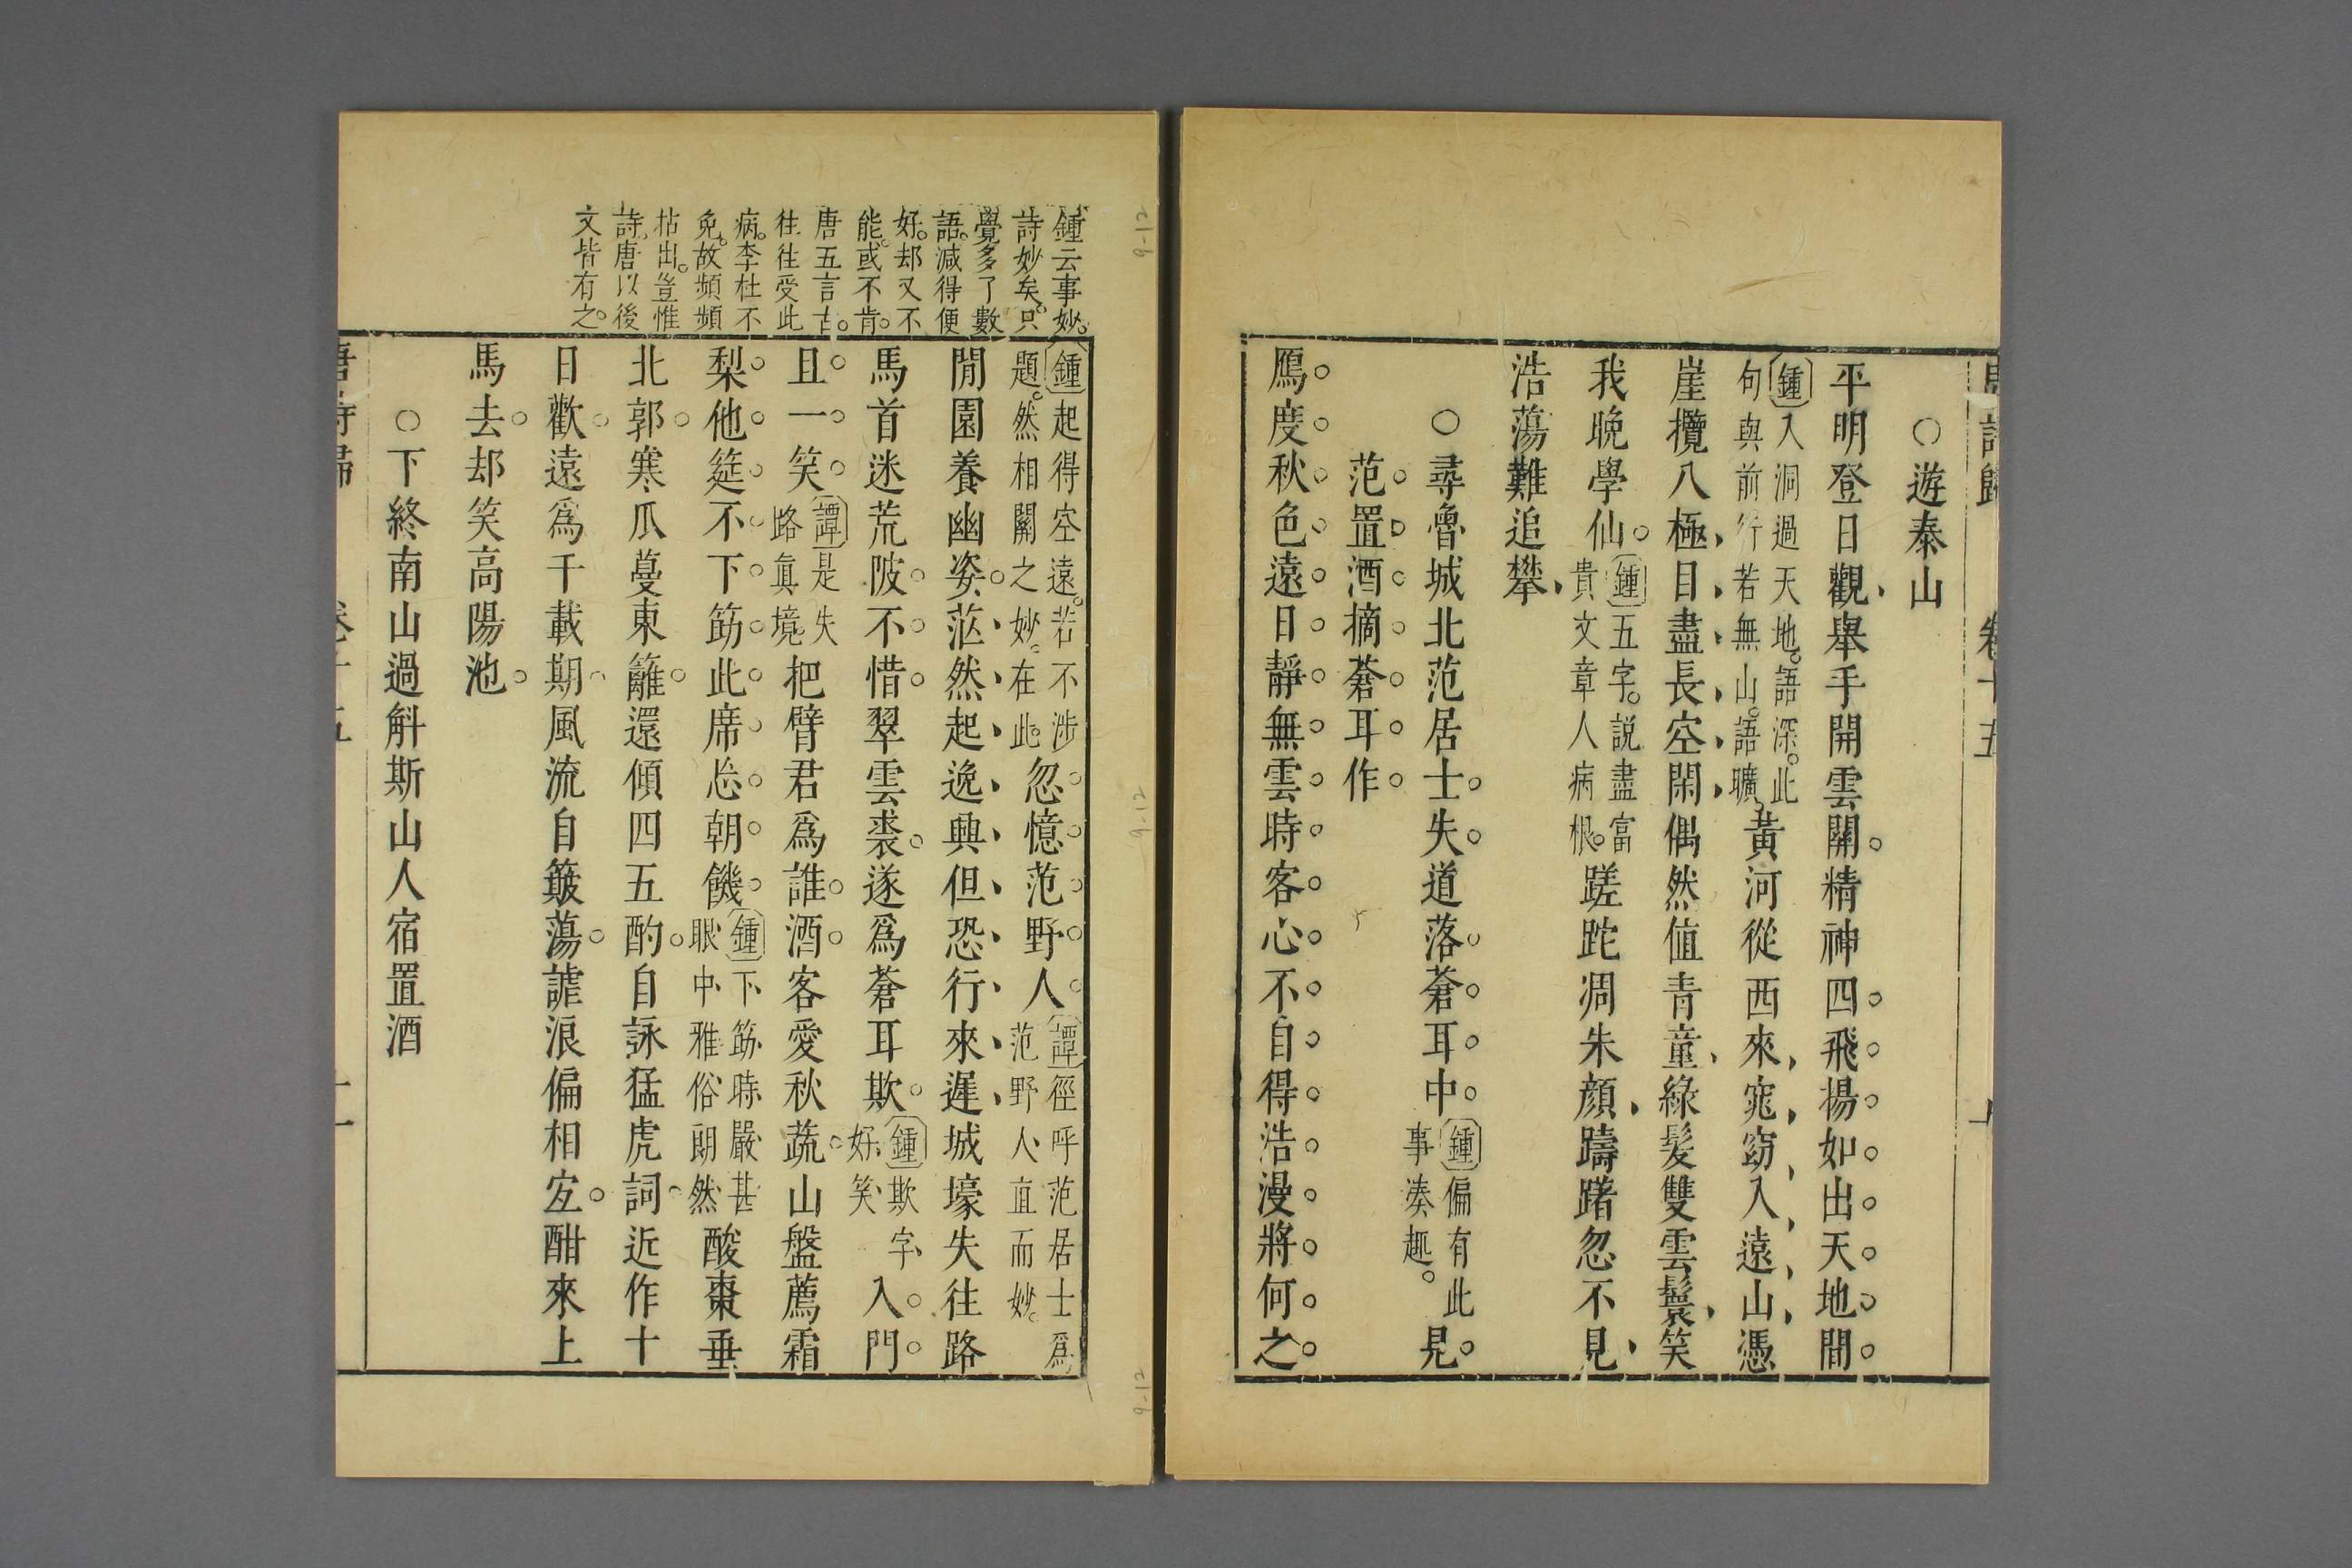 ○遊泰山
平明登日觀舉手開雲關。精神四飛揚如出天地間。
鍾入洞過天地。語深。此
句與前行若無山。語曠。
黃河從西來窕窈入遠山憑
崖攬八極目盡長空閑偶然值青童綠髮雙雲鬟笑
我晚學仙。
鍾五字。説盡富
貴文章人病根。
蹉跎凋朱顏躊躇忽不見
浩蕩難追攀
○尋魯城北范居士失道落蒼耳中
鍾偏有此
事湊趣。
見
范置酒摘蒼耳作
鴈度秋色遠日靜無雲時客心不自得浩漫將何之
鍾云事妙。
詩妙矣。只
覺多了數
語。減得便
好。却又不
能。或不肯。
唐五言古。
往往受此
病。李杜不
免。故頻頻
拈出。豈惟
詩。唐以後
文皆有之。
鍾起得空遠。若不涉
題。然相關之妙。在此。
忽憶范野人
譚徑呼范居士爲
范野人直而妙。
閒園養幽姿。茫然起逸興但恐行來遲城壕失往路
馬首迷荒陂不惜翠雲裘。遂爲蒼耳欺
鍾欺字
好笑
入門
且一笑
譚是失
路眞境。
把臂君爲誰。酒客愛秋蔬。山盤薦霜
梨他筵不下筯此席忘朝饑
鍾下筯時嚴甚
眼中雅俗朗然
酸棗垂
北郭寒瓜蔓東籬。還傾四五酌。自詠猛虎詞近作十
日歡遠爲千載期風流自簸蕩。謔浪偏相宐。酣來上
馬去却笑高陽池。
○下終南山過斛斯山人宿置酒
唐詩歸
卷十五
十一